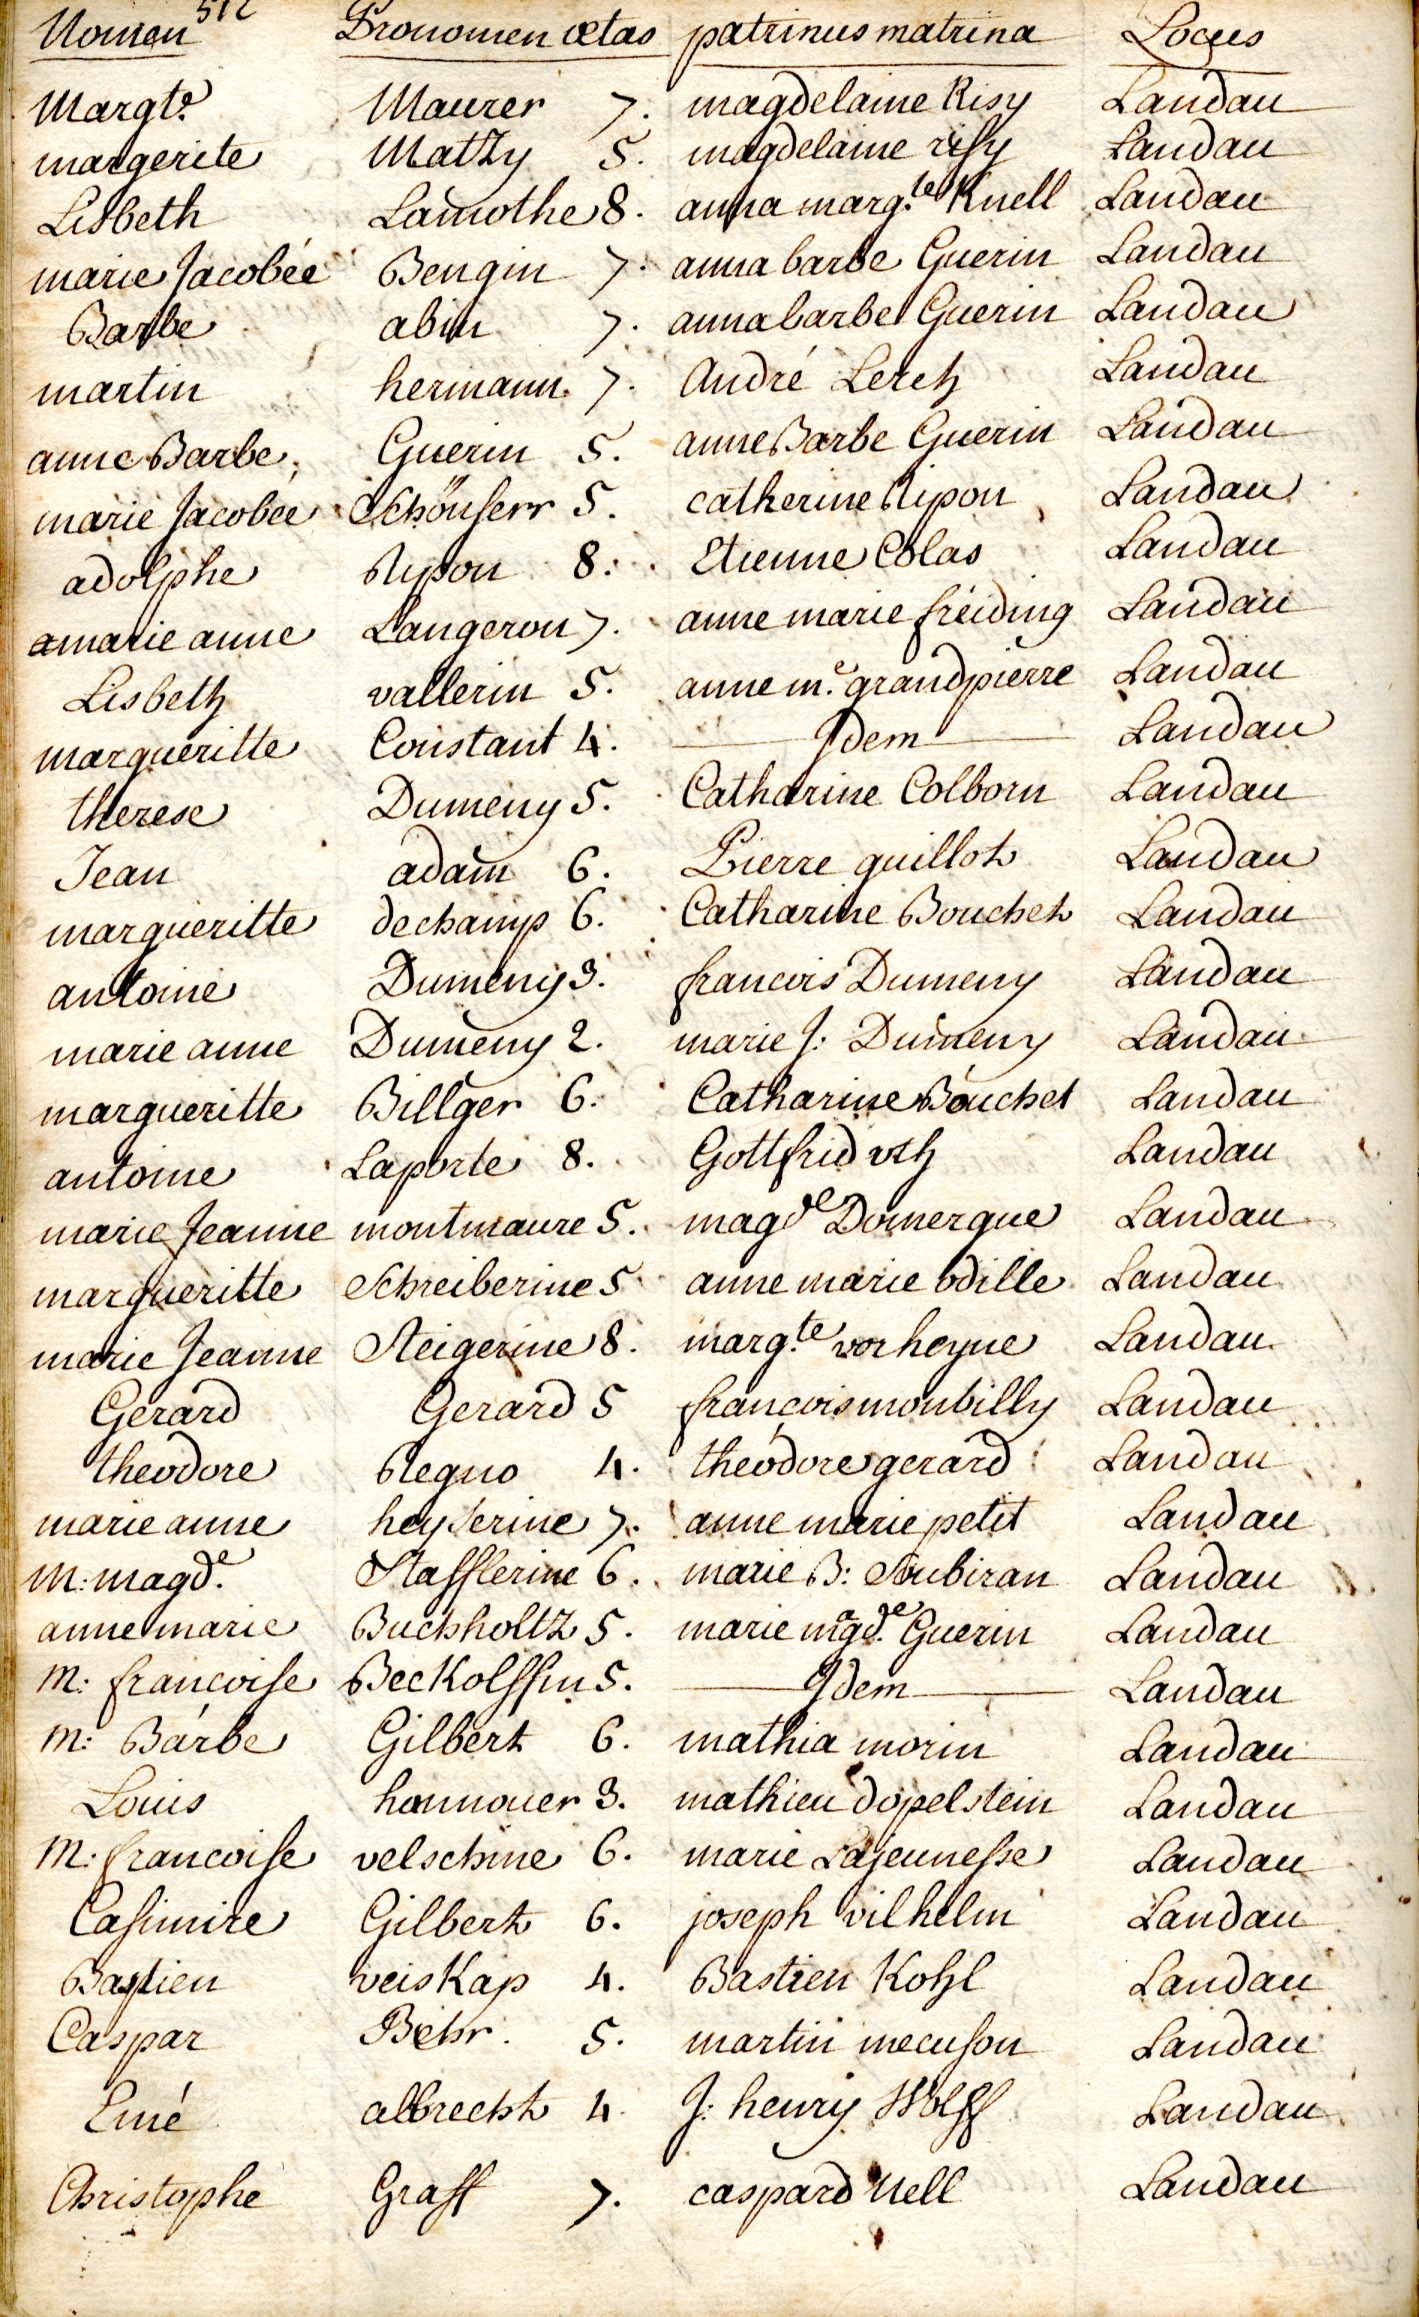 Nomen 512 Pronomen ætas patrinus matrina Locus
Margte. Maurer 7. magdelaine Risy Landau
margerite Matzy 5. magdelaine risy Landau
Lisbeth Lamothe 8. anna marg.te Knell Landau
marie Jacobée Bengin 7. anna barbe Guerin Landau
Barbe abin 7. anna barbe Guerin Landau
martin hermann 7. André Lerch Landau
anne Barbe Guerin 5. anne Barbe Guerin Landau
marie Jacobée Schönherr 5. catherine Ripon Landau
adolphe Ripon 8. Etienne Colas Landau
amarie anne Langeron 7. anne marie freiding Landau
Lisbeth vallerin 5. anne m.e grandpierre Landau
margueritte Constant 4. Idem Landau
therese Dumeny 5. Catharine Colborn Landau
Jean adam 6. Pierre guillot Landau
margueritte dechamp 6. Catharine Bouchet Landau
antoine Dumeny 3. francois Dumeny Landau
marie anne Dumeny 2. marie J: Dumeny Landau
margueritte Billger 6. Catharine Bouchet Landau
antoine Laporte 8. Gottfrid vth Landau
marie Jeanne montmaure 5. magde Domergue Landau
margueritte Schreiberine 5. anne marie odille Landau
marie Jeanne Steigerine 8. marg.te vorheyne Landau
Gerard Gerard 5 francois monbilly Landau
theodore Regno 4. theodore gerard Landau
marie anne heyserine 7. anne marie petit Landau
M: magd.e Stafflerine 6. marie B: Aubiran Landau
anne marie Buchholtz 5. marie magd.e Guerin Landau
M: francoise Beckolffin 5. Idem Landau
M: Barbe Gilbert 6. mathia morin Landau
Louis hannover 3. mathieu dopelstein Landau
M: francoise velschine 6. marie Lajeunesse Landau
Casimire Gilbert 6. joseph vilhelm Landau
Bastien veiskap 4. Bastien Kohl Landau
Caspar Behr 5. martin mecuson Landau
Emé albrecht 4. J: henry Wolff Landau
Christophe Graff 7. caspard Nell Landau